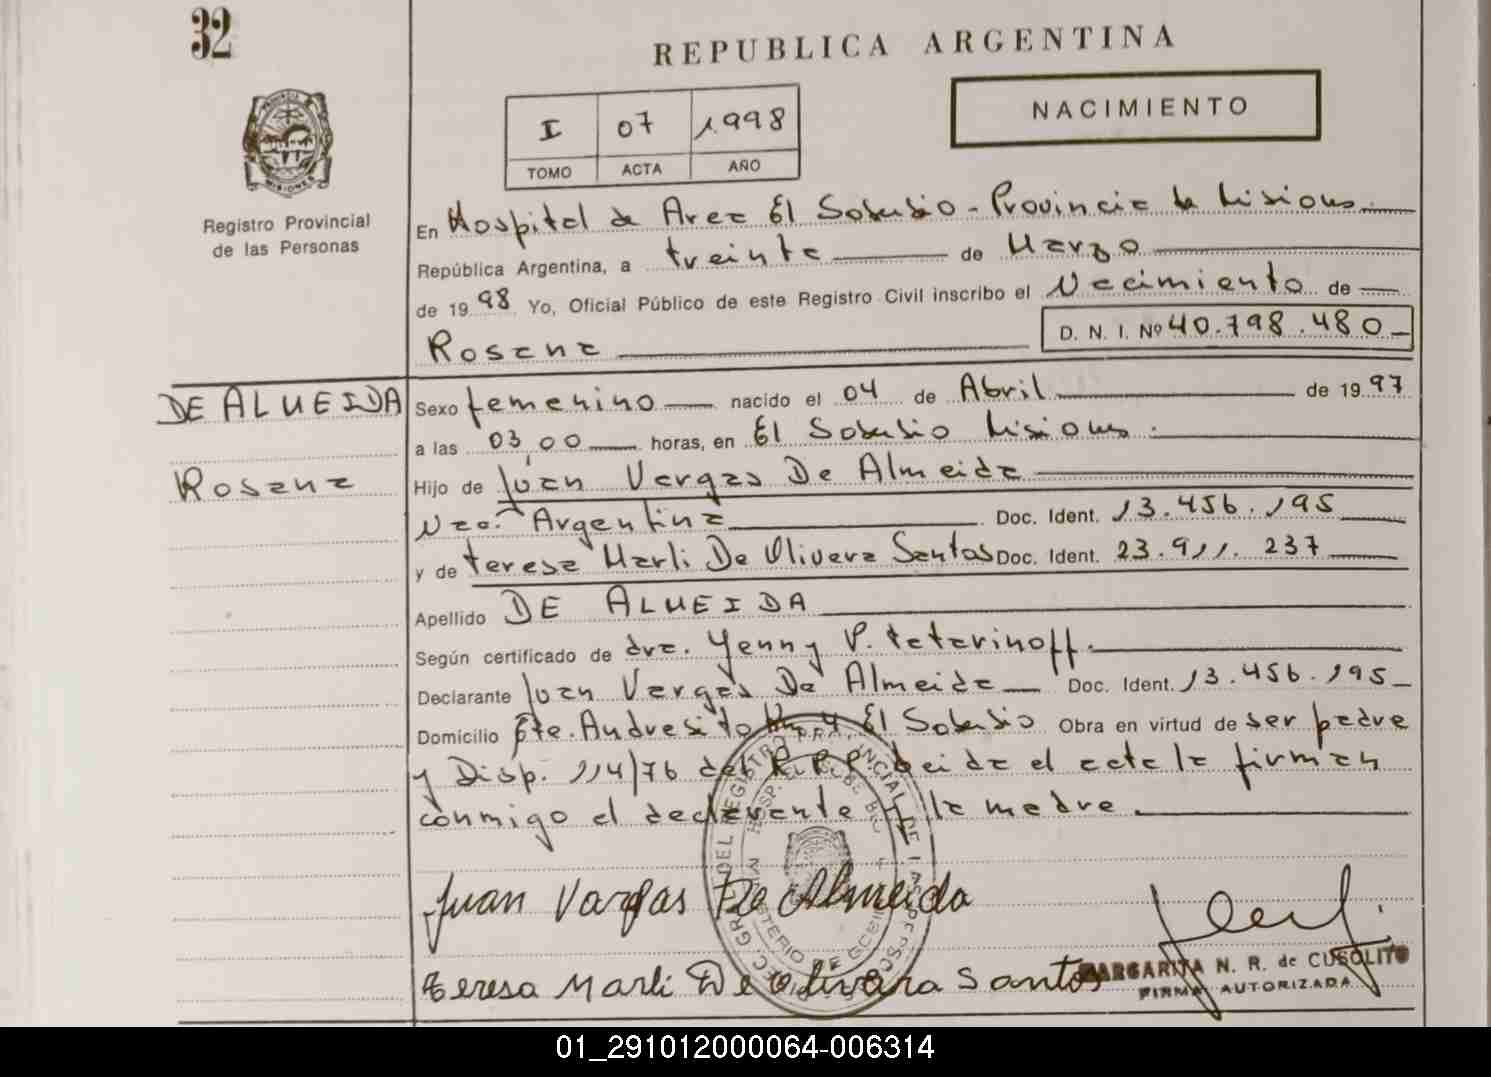 32
REPUBLICA ARGENTINA
I 07 1998
TOMO ACTA AÑO
NACIMIENTO
PROVINCIA
MISIONES
Registro Provincial
de las Personas
En Hospital de Area El Soberbio - Provincia de Misiones
República Argentina, a treinta de Marzo
de 1998 Yo, Oficial Público de este Registro Civil inscribo el Nacimiento de
Rosana D. N. I. Nº 40.798.480
DE ALMEIDA
Rosana
Sexo femenino nacido el 04 de Abril de 1997
a las 03,00 horas, en El Soberbio Misiones.
Hijo de Juan Vargas De Almeida
Nac. Argentina Doc. Ident. 13.456.195
y de teresa Marli De Olivera Santos Doc. Ident. 23.911.237
Apellido DE ALMEIDA
Según certificado de dra. Yenny P. tetarinoff.
Declarante Juan Vargas De Almeida Doc. Ident. 13.456.195
Domicilio Pte. Andresito Km 4 El Soberbio Obra en virtud de ser padre
y Disp. 114/76 del R.P.P. Leida el acta la firman
conmigo el declarante y la madre.
Juan Vargas De Almeida
teresa Marli De Olivara Santos
MARGARITA N. R. de CUSOLITO
FIRMA AUTORIZADA
01_291012000064-006314